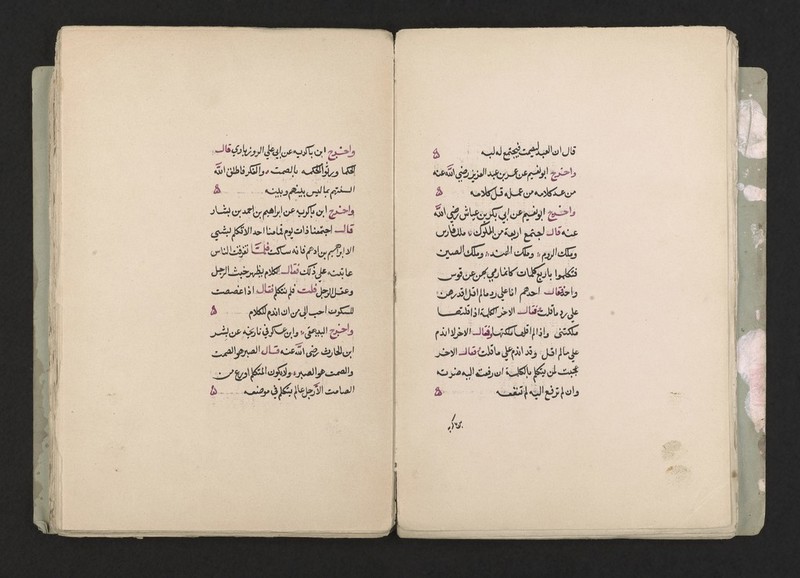 قال ان العبد ليصمت فيجتمع له لبه
واخرج ابو نعيم عن عمر بن عبد العزيز رضي الله عنه
من عد كلامه من عمله قل كلامه
واخرج ابو نعيم عن ابي بكر بن عياش رضي الله
عنه قال اجتمع اربعة من الملوك ملك فارس
وملك الروم وملك الهند وملك الصين
فتكلموا باربع كلمات كانما رمي بهن عن قوس
واحد فقال احدهم انا على رد ما لم اقل اقدر من
على رد ما قلت وقال الاخر الكلمة اذا قلتها
ملكتني واذا لم اقلها ملكتها وقال الاخر لا اندم
على ما لم اقل وقد اندم على ما قلت وقال الاخر
عجبت لمن يتكلم بالكلمة ان رفعت اليه ضرته
وان لم ترفع اليه لم تنفعه
واخرج ابن باكويه عن ابي علي الروزباري قال
الحكما ورثوا الحكمة بالصمت والفكر فاطلق الله
السنتهم بما ليس بينهم وبينه
واخرج ابن باكويه عن ابراهيم بن احمد بن بشار
قال اجتمعنا ذات يوم فما منا احد الا تكلم بشي
الا ابراهيم بن ادهم فانه ساكت فلما تفرقت الناس
عاتبته على ذلك فقال الكلام يظهر خبث الرجل
وعقل الرجل قلت فلم تتكلم فقال اذا غصصت
للسكوت احب الي من ان اندم للكلام
واخرج البيهقي وابن عساكر في تاريخه عن بشر
ابن الحارث رضي الله عنه قال الصبر هو الصمت
والصمت هو الصبر ولا يكون المتكلم اورع من
الصامت الا رجل عالم يتكلم في موضعه